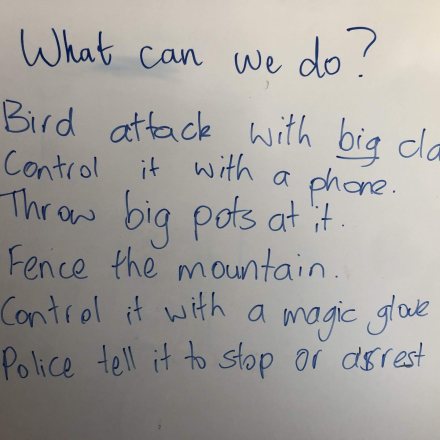 What can we do?
Bird attack with big cla
Control it with a phone.
Throw big pots at it.
Fence the mountain.
Control it with a magic glove
Police tell it to stop or arrest